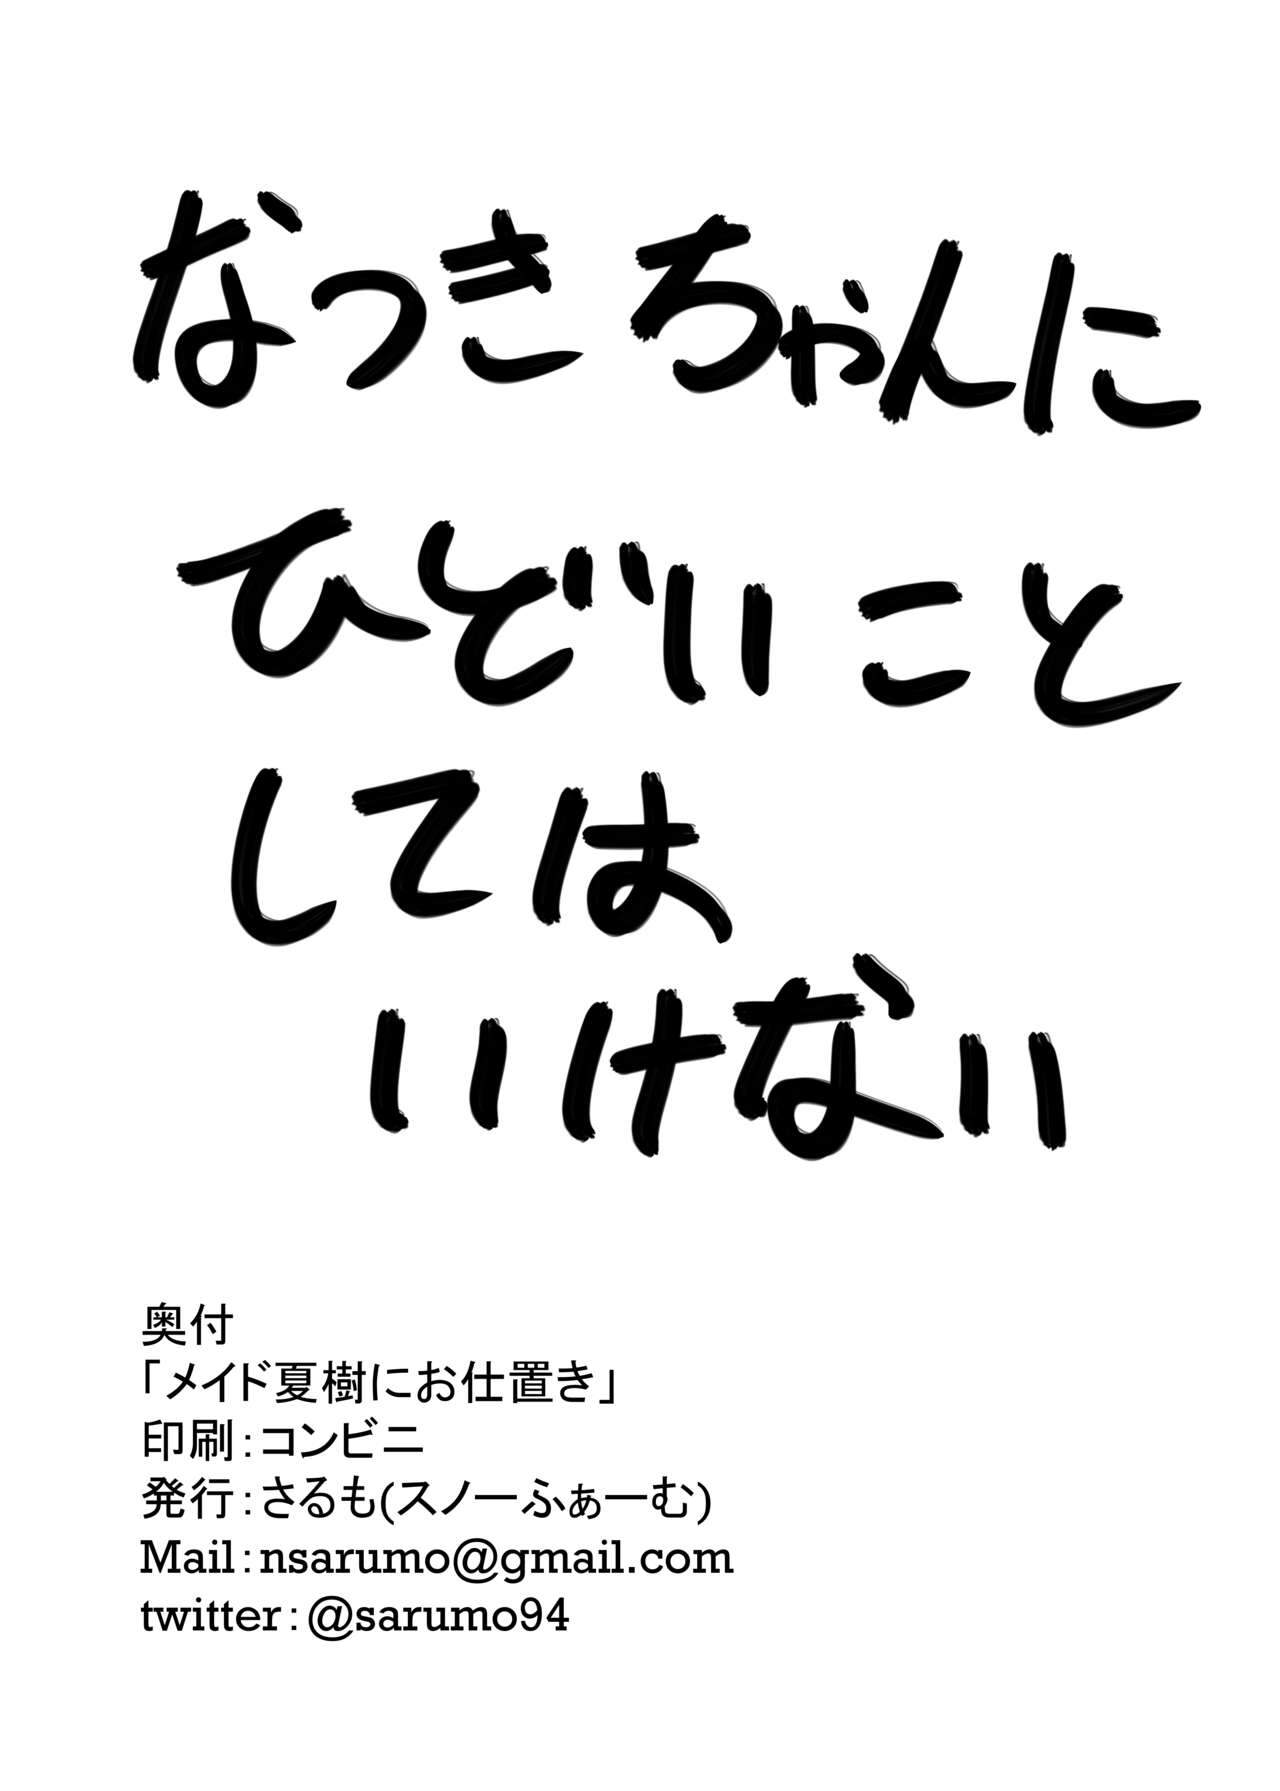 なつきちゃんに
ひどいこと
しては
いけない
奥付
「メイド夏樹にお仕置き」
印刷：コンビニ
発行：さるも(スノーふぁーむ)
Mail：nsarumo@gmail.com
twitter：@sarumo94